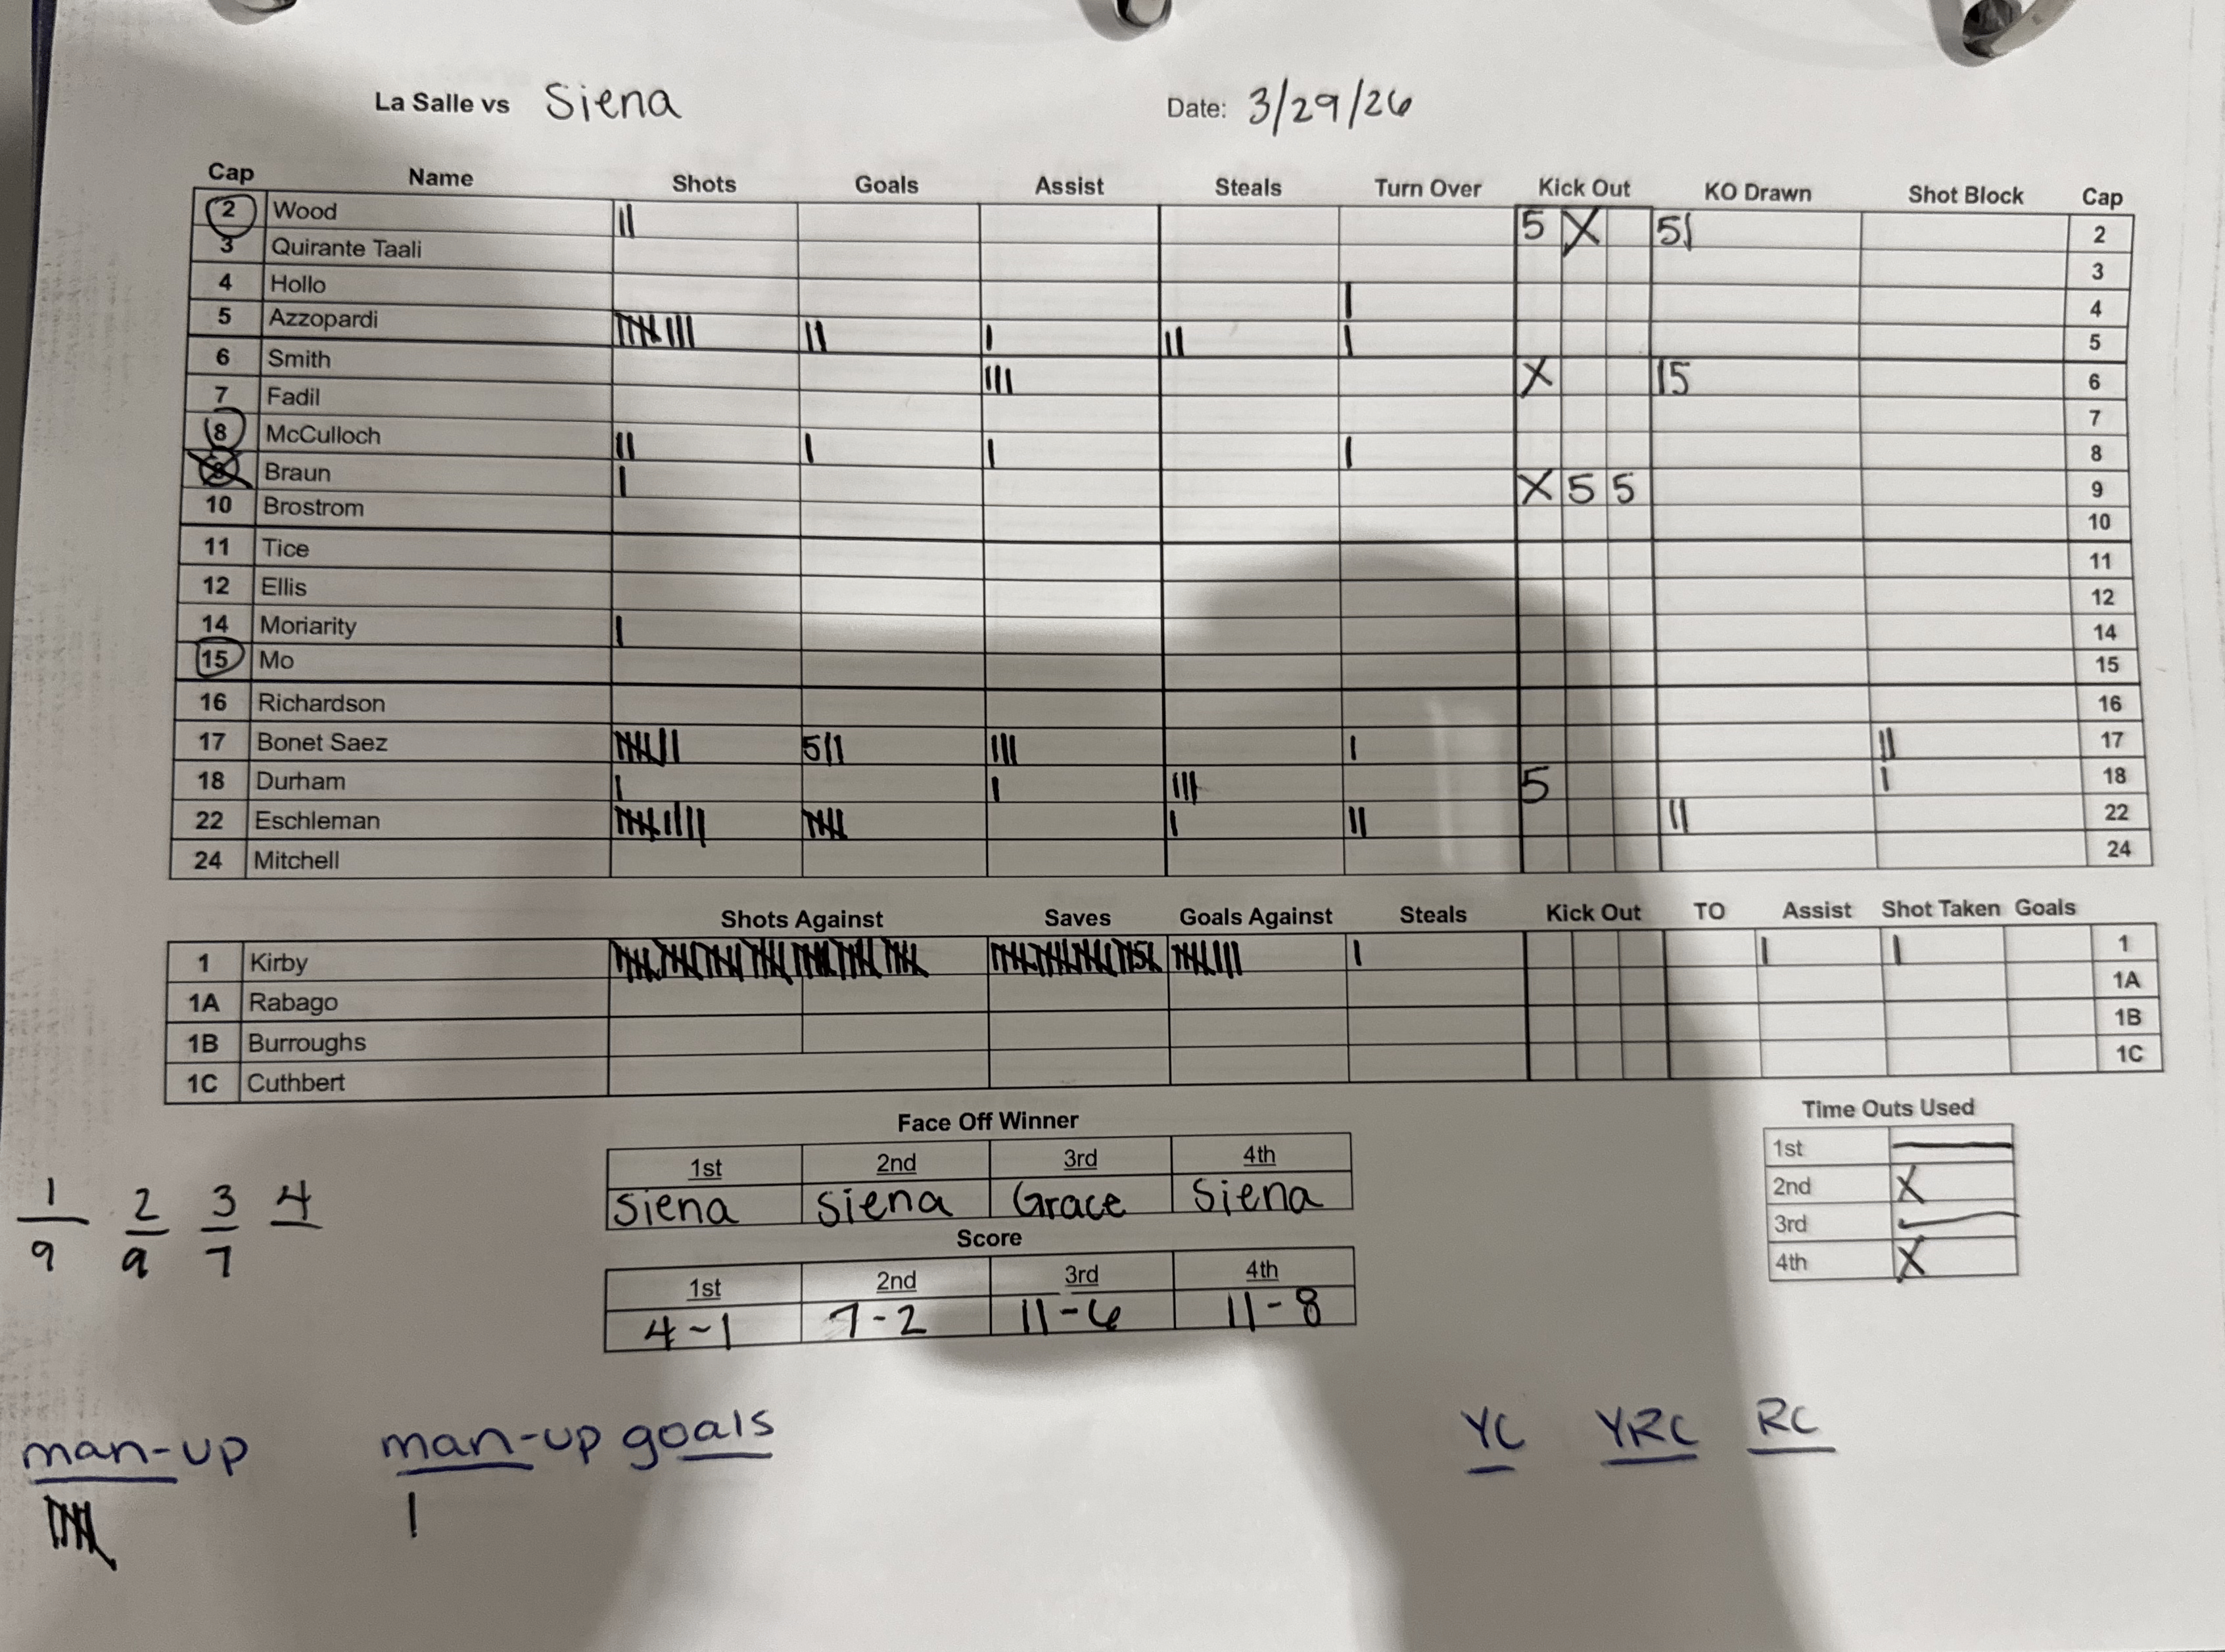 La Salle vs Siena Date: 3/29/26
Cap Name Shots Goals Assist Steals Turn Over Kick Out KO Drawn Shot Block Cap
2 Wood || 5 X 5| 2
3 Quirante Taali 3
4 Hollo | 4
5 Azzopardi |||||||| || | || | 5
6 Smith ||| X |5 6
7 Fadil 7
8 McCulloch || | | | 8
Braun | X 5 5 9
10 Brostrom 10
11 Tice 11
12 Ellis 12
14 Moriarity | 14
15 Mo 15
16 Richardson 16
17 Bonet Saez ||||||| 5|| ||| | || 17
18 Durham | | ||| 5 | 18
22 Eschleman ||||||||| ||||| | || || 22
24 Mitchell 24
Shots Against Saves Goals Against Steals Kick Out TO Assist Shot Taken Goals
1 Kirby |||||||| | | | 1
1A Rabago 1A
1B Burroughs 1B
1C Cuthbert 1C
Face Off Winner
1st 2nd 3rd 4th
Siena Siena Grace Siena
Score
1st 2nd 3rd 4th
4-1 7-2 11-6 11-8
Time Outs Used
1st —
2nd X
3rd —
4th X
1 2 3 4
9 9 7
man-up man-up goals YC YRC RC
||||| |